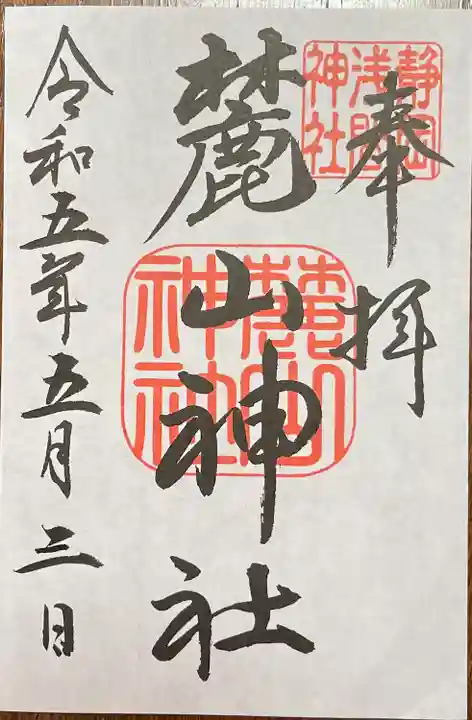 奉拝
静岡
浅間
神社
麓山神社
麓山
神社
令和五年五月三日